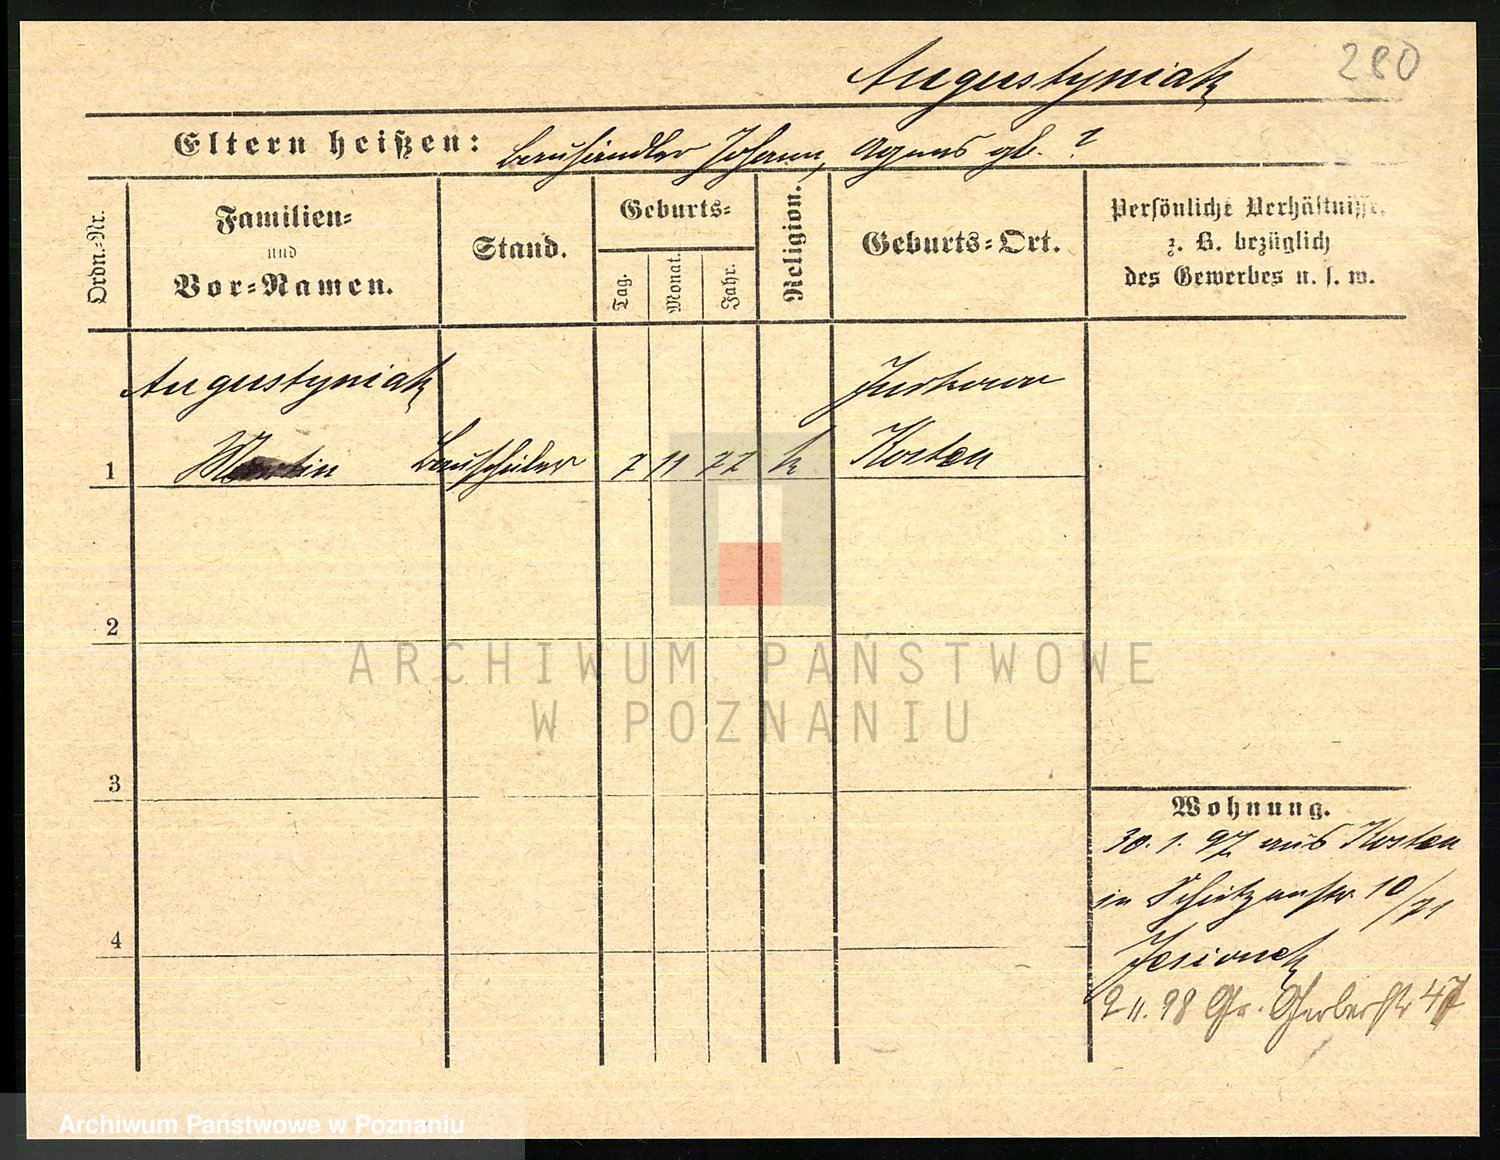 280
Augustyniak
Eltern heißen: Johann, Agnes gb. ?
Ordn.-Nr.
Familien-
und
Vor-Namen.
Stand.
Geburts-
Tag.
Monat.
Jahr.
Religion.
Geburts-Ort.
Persönliche Verhältnisse,
z. B. bezüglich
des Gewerbes u. s. w.
Augustyniak
Jurkowo
1 Martin Bauschüler 7 11 77 k Kosten
2
3
4
Wohnung.
30. 1. 97 aus Kosten
in Schützenstr. 10/71
Jesionek
9 11. 98 Gr. Gerberstr 47
ARCHIWUM PAŃSTWOWE
W POZNANIU
Archiwum Państwowe w Poznaniu